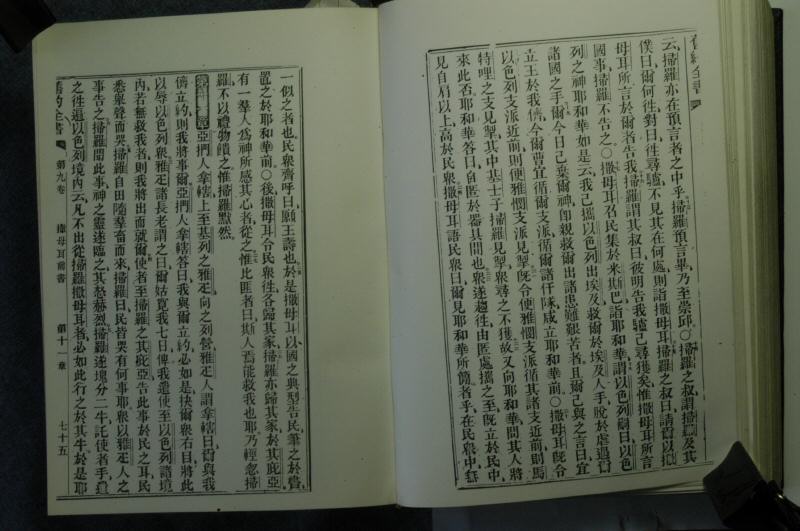 舊約全書
云掃羅亦在預言者之中乎掃羅預言畢乃至崇邱○掃羅之叔謂掃羅及其
僕曰爾何往對曰往尋驢不見其在何處則詣撒母耳掃羅之叔曰請爾以撒
母耳所言於爾者告我掃羅謂其叔曰彼明告我驢已尋獲矣惟撒母耳所言
國事掃羅不告之○撒母耳召民集於米斯巴詣耶和華謂以色列嗣曰以色
列之神耶和華如是云我已攜以色列出埃及救爾於埃及人手脫於虐遇爾
諸國之手爾今日已棄爾神即親救爾出諸患難艱苦者且爾已與之言曰宜
立王於我儕今爾曹宜循爾支派循爾諸仟隊咸立耶和華前○撒母耳既令
以色列支派近前則便雅憫支派見掣既令便雅憫支派循其諸支近前則馬
特哩之支見掣其中基士子掃羅見掣眾尋之不獲故又向耶和華問其人將
來此否耶和華答曰自匿於器具間也眾遂趨往由匿處攜之至既立於民中
見自肩以上高於民眾撒母耳語民眾曰爾見耶和華所簡者乎在民眾中無
一似之者也民眾齊呼曰願王壽也於是撒母耳以國之典型告民筆之於書
置之於耶和華前○後撒母耳令民眾往各歸其家掃羅亦歸其家於其庇亞
有一羣人為神所感其心者從之惟比匪者曰斯人焉能救我也乃輕忽掃
羅不以禮物饋之惟掃羅默然
亞捫人拿轄上至基列之雅疋向之列營雅疋人謂拿轄曰爾與我
儕立約則我將事爾亞捫人拿轄答曰我與爾立約必如是抉爾眾右目將此
以辱以色列眾雅疋諸長老謂之曰爾姑寬我七日俾我遣使至以色列諸境
內若無救我者則我將出而就爾使者至掃羅之其庇亞告此事於民之耳民
悉舉聲而哭掃羅自田隨羣畜而來掃羅曰民皆哭有何事耶眾以雅疋人之
事告之掃羅聞此事神之靈遂臨之其怒赫烈掃羅遂塊分二牛託使者手遣
之往遍以色列境內云凡不出從掃羅撒母耳者必如此行之於其牛於是耶
舊約全書 第九卷 撒母耳前書 第十一章 七十五